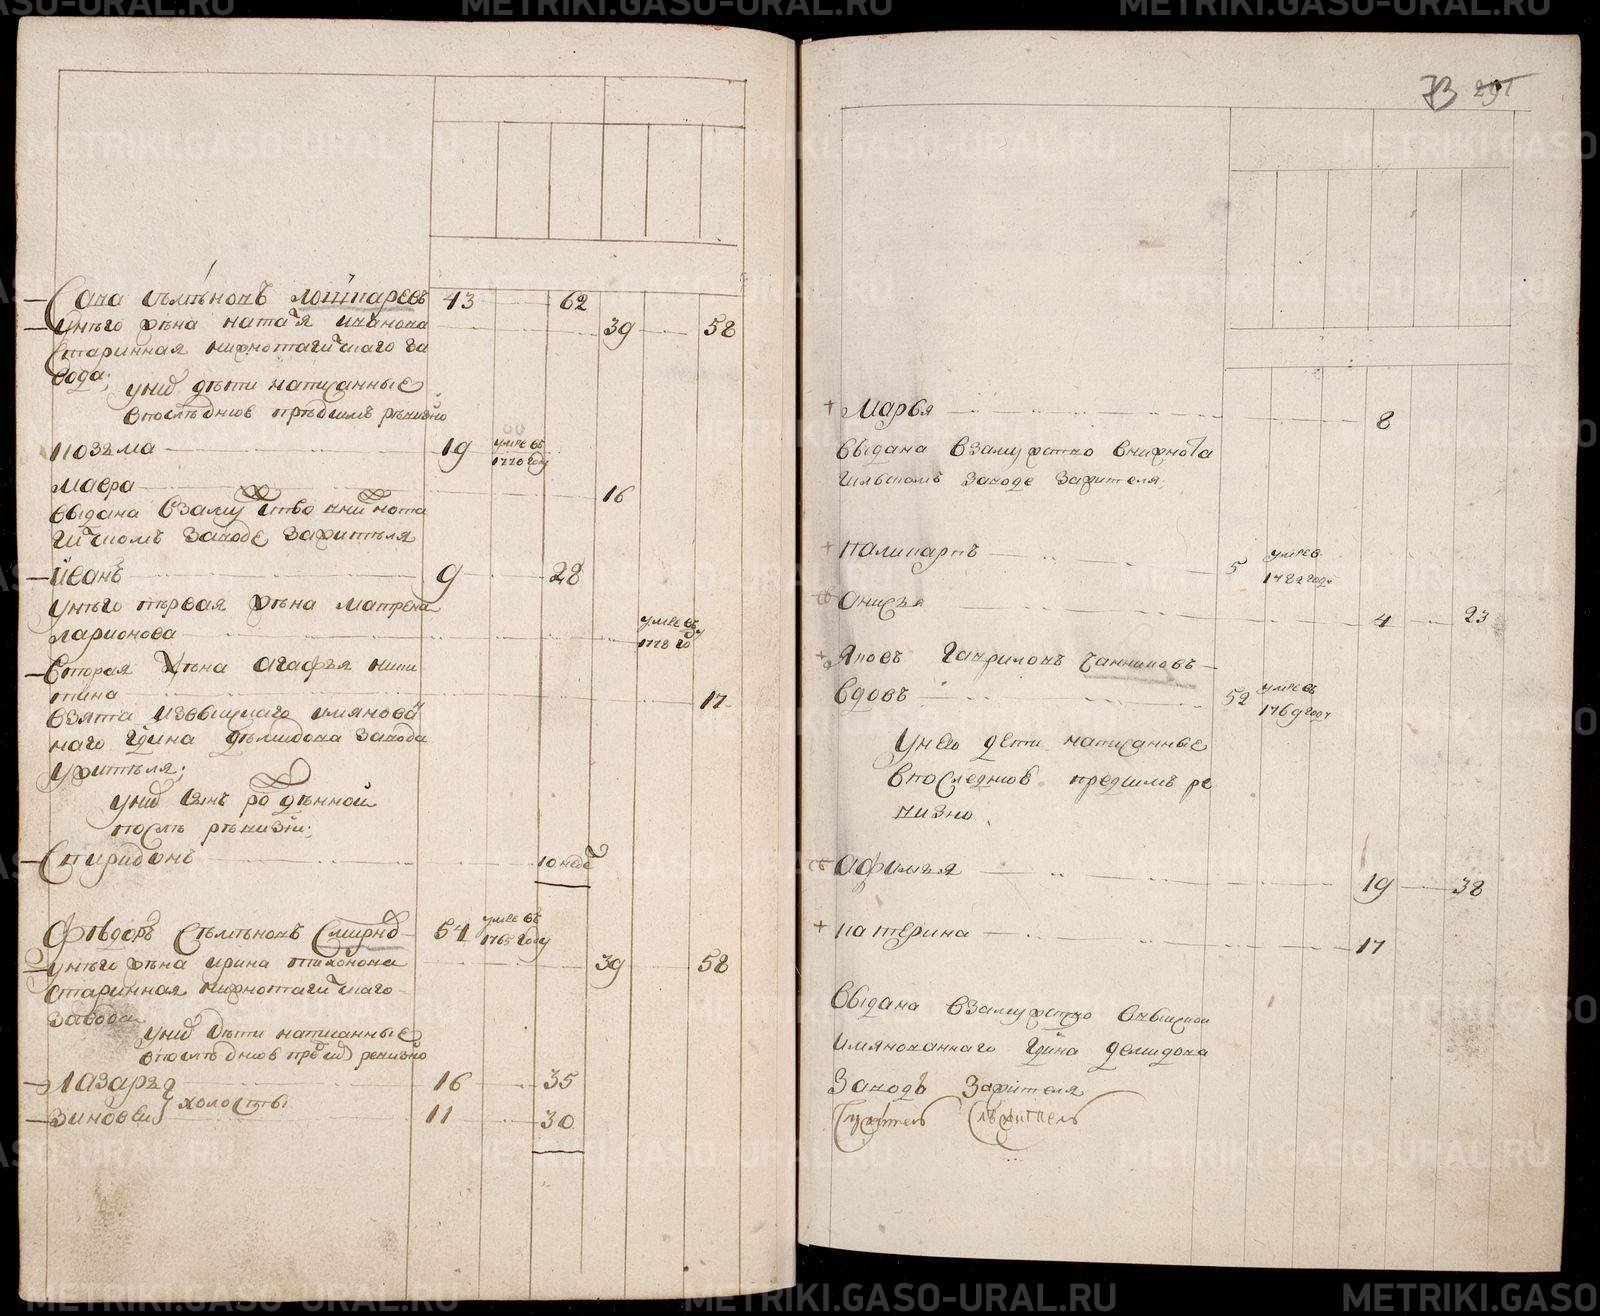 Сава Семеновъ Лошкаревъ 43 62
унего жена наталя иванова 39 58
Старинная нижнотагилскаго за
вода;
унихъ дети написанные
впоследнюю предсимъ ревизию
козма 19 умре въ 1770 году
мавра 16
выдана взамужство внижнота
гилскомъ заводе зажителя
иванъ 9 28
унего первая жена матрена
ларионова умре въ 1778 году
вторая жена агафья ники
тина 17
взята изъвышъписаго имянован
наго гдина демидова завода
ужителя;
унихъ сынъ рожденной
после ревизии;
Спиридонъ 10 нед
Федоръ Семеновъ Смирно 54 умре въ 1765 году
унего жена ирина тихонова 39 58
старинная нижнотагилскаго
завода
унихъ дети написанные
впоследнюю предсимъ ревизию
Лазарь 16 35
холосты
Зиновеи 11 30
73 291
Марья 8
выдана взамужство внижнота
гилскомъ заводе зажителя.
Паликарпъ 5 умре въ 1782 году
Анисья 4 23
Яковъ Гавриловъ Санниковъ
вдовъ 52 умре въ 1769 году
унего дети написанные
впоследнюю предсимъ ре
визию
Афимья 19 38
катерина 17
выдана взамужство ввыше
имянованнаго гдина демидова
заводъ зажителя
Служитель